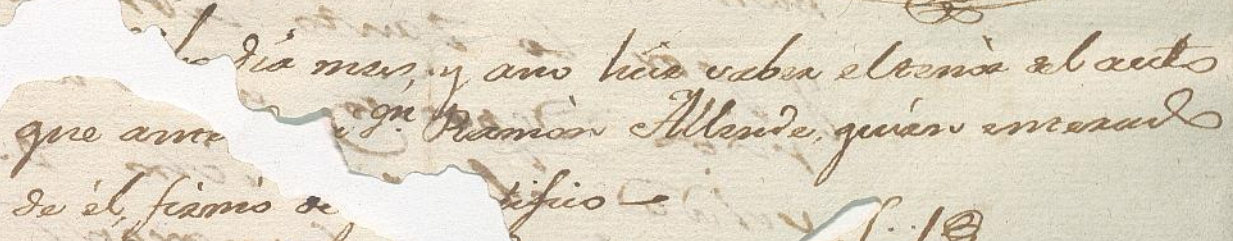 dia mes, y año hize saber el tenòr del auto
que ante Ramòn Allende, quièn enterado
de èl, firmò de tifico